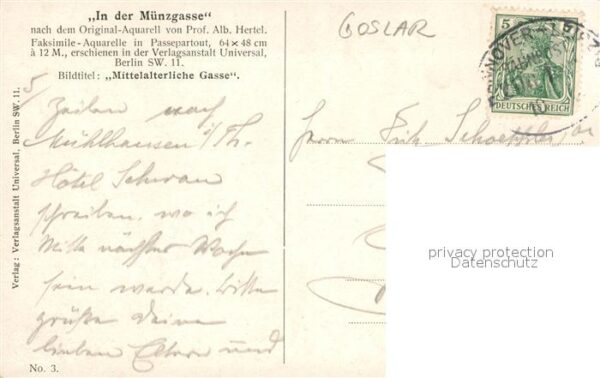 „In der Münzgasse“
nach dem Original-Aquarell von Prof. Alb. Hertel.
Faksimile-Aquarelle in Passepartout, 64×48 cm
à 12 M., erschienen in der Verlagsanstalt Universal,
Berlin SW. 11.
Bildtitel: „Mittelalterliche Gasse“.
GOSLAR
5
DEUTSCHES REICH
Verlag: Verlagsanstalt Universal, Berlin SW. 11.
Zeilen nach
Mühlhausen i/Th.
Hôtel Schwan
schreiben, wo ich
Mitte nächster Woche
sein werde. Bitte
grüße Deine
lieben Eltern und
Herrn Fritz
privacy protection
Datenschutz
No. 3.